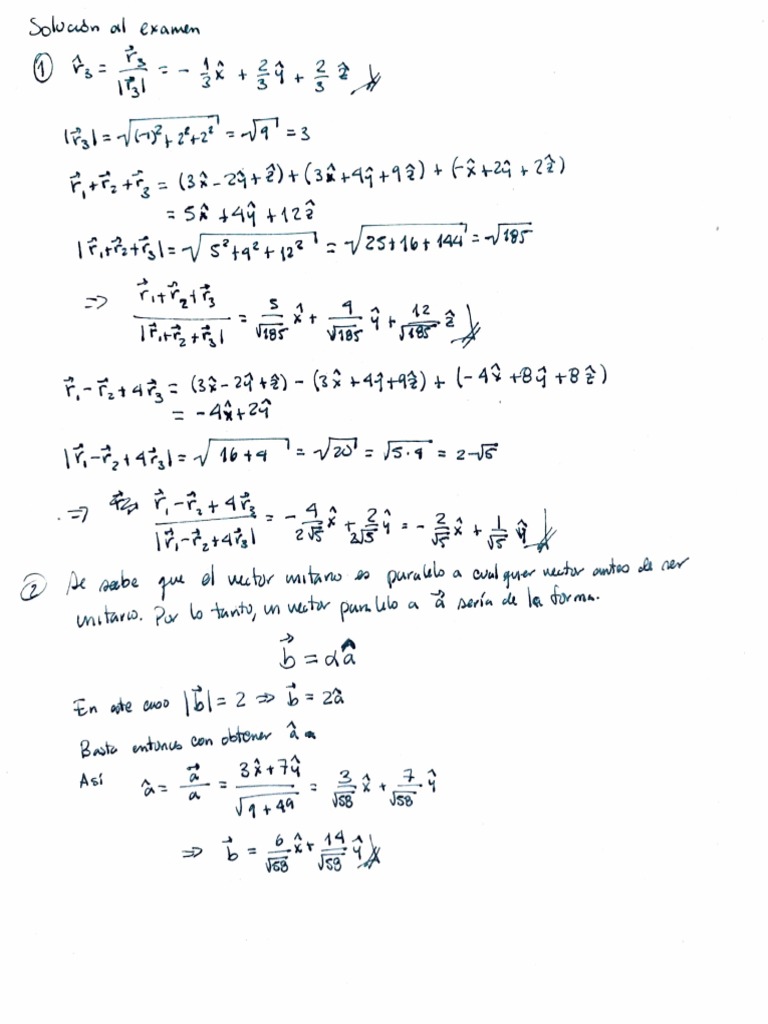 Solución al examen
① r̂₃ = r⃗₃/|r⃗₃| = - 1/3 x̂ + 2/3 ŷ + 2/3 ẑ
|r⃗₃| = √((-1)² + 2² + 2²) = √9 = 3
r⃗₁ + r⃗₂ + r⃗₃ = (3x̂ - 2ŷ + ẑ) + (3x̂ + 4ŷ + 9ẑ) + (-x̂ + 2ŷ + 2ẑ)
= 5x̂ + 4ŷ + 12ẑ
|r⃗₁ + r⃗₂ + r⃗₃| = √(5² + 4² + 12²) = √(25 + 16 + 144) = √185
⇒ (r⃗₁ + r⃗₂ + r⃗₃)/|r⃗₁ + r⃗₂ + r⃗₃| = 5/√185 x̂ + 4/√185 ŷ + 12/√185 ẑ
r⃗₁ - r⃗₂ + 4r⃗₃ = (3x̂ - 2ŷ + ẑ) - (3x̂ + 4ŷ + 9ẑ) + (-4x̂ + 8ŷ + 8ẑ)
= -4x̂ + 2ŷ
|r⃗₁ - r⃗₂ + 4r⃗₃| = √(16 + 4) = √20 = √(5·4) = 2√5
⇒ (r⃗₁ - r⃗₂ + 4r⃗₃)/|r⃗₁ - r⃗₂ + 4r⃗₃| = - 4/(2√5) x̂ + 2/(2√5) ŷ = - 2/√5 x̂ + 1/√5 ŷ
② Se sabe que el vector unitario es paralelo a cualquier vector antes de ser
unitario. Por lo tanto, un vector paralelo a a⃗ sería de la forma.
b⃗ = αâ
En este caso |b⃗| = 2 ⇒ b⃗ = 2â
Basta entonces con obtener â
Así â = a⃗/a = (3x̂ + 7ŷ)/√(9 + 49) = 3/√58 x̂ + 7/√58 ŷ
⇒ b⃗ = 6/√58 x̂ + 14/√58 ŷ